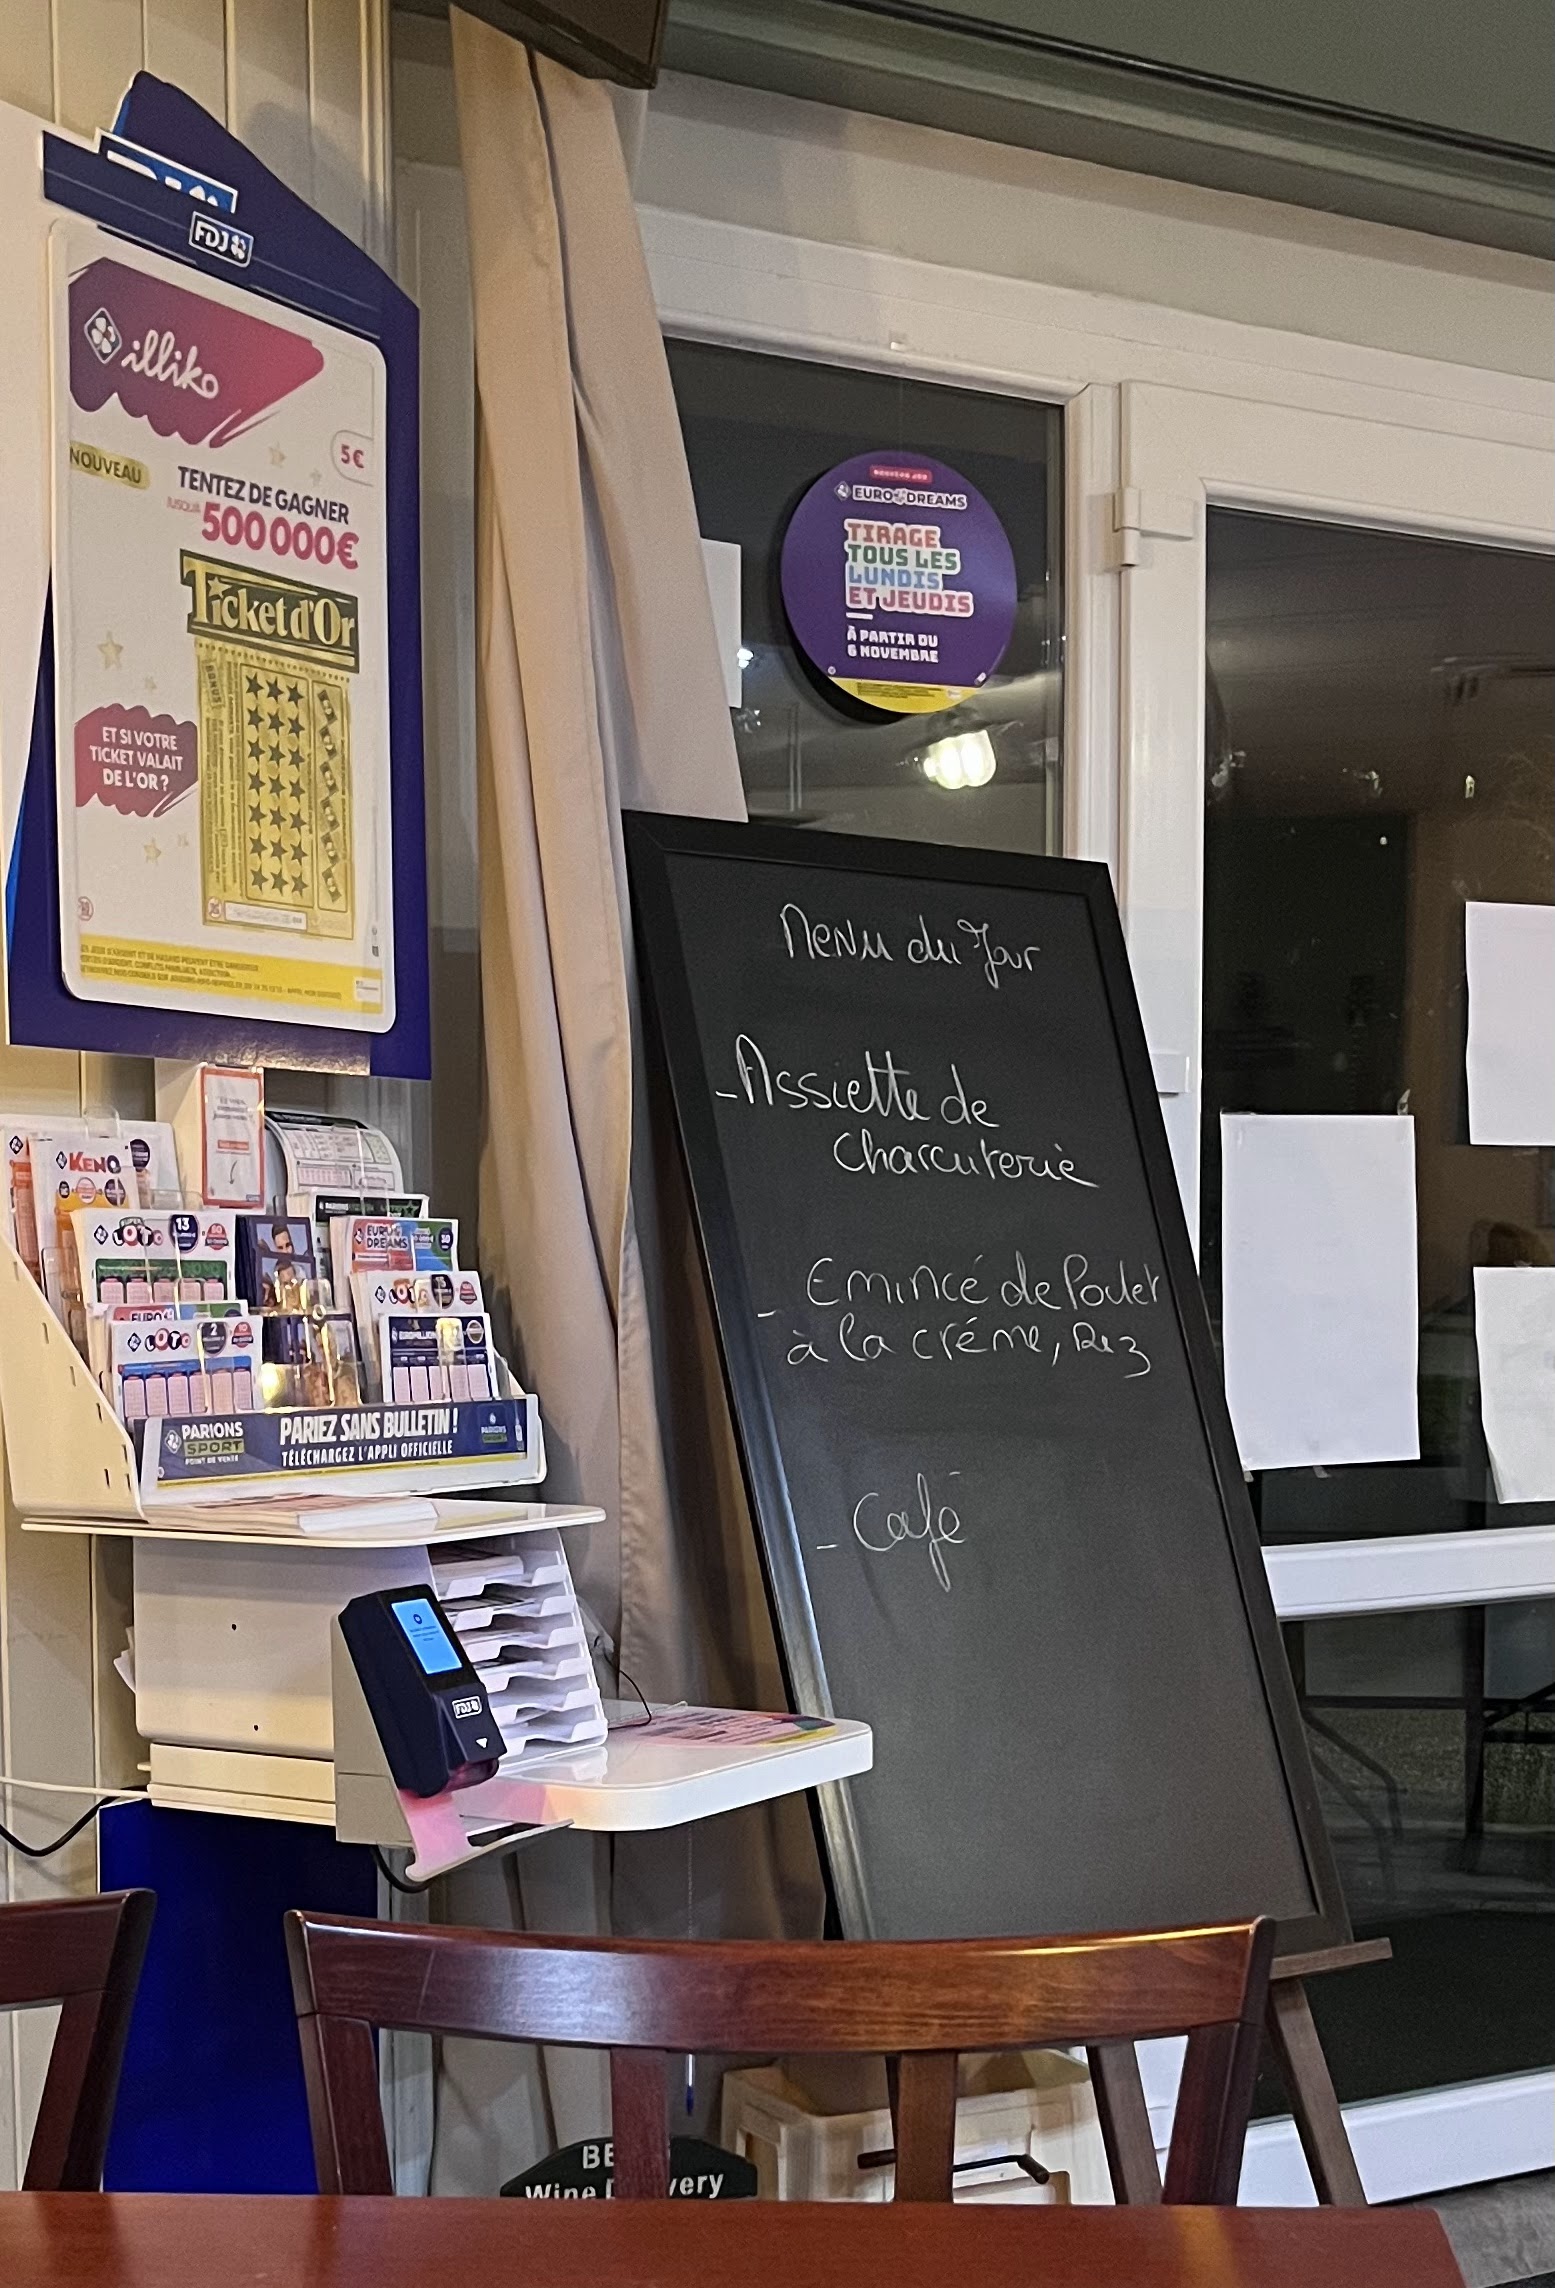 FDJ
illiko
NOUVEAU
5€
TENTEZ DE GAGNER
JUSQU'À
500 000€
Ticket d'Or
BONUS
ET SI VOTRE
TICKET VALAIT
DE L'OR ?
NOUVEAU JEU
EURODREAMS
TIRAGE
TOUS LES
LUNDIS
ET JEUDIS
À PARTIR DU
6 NOVEMBRE
Menu du Jour
- Assiette de
charcuterie
- Emincé de Poulet
à la créme, Riz
- Café
KENO
SUPER
LOTO
13
EURO
DREAMS
LOTO
LOTO
2
EUROMILLIONS
PARIONS
SPORT
POINT DE VENTE
PARIEZ SANS BULLETIN !
TÉLÉCHARGEZ L'APPLI OFFICIELLE
FDJ
BE
Wine
very